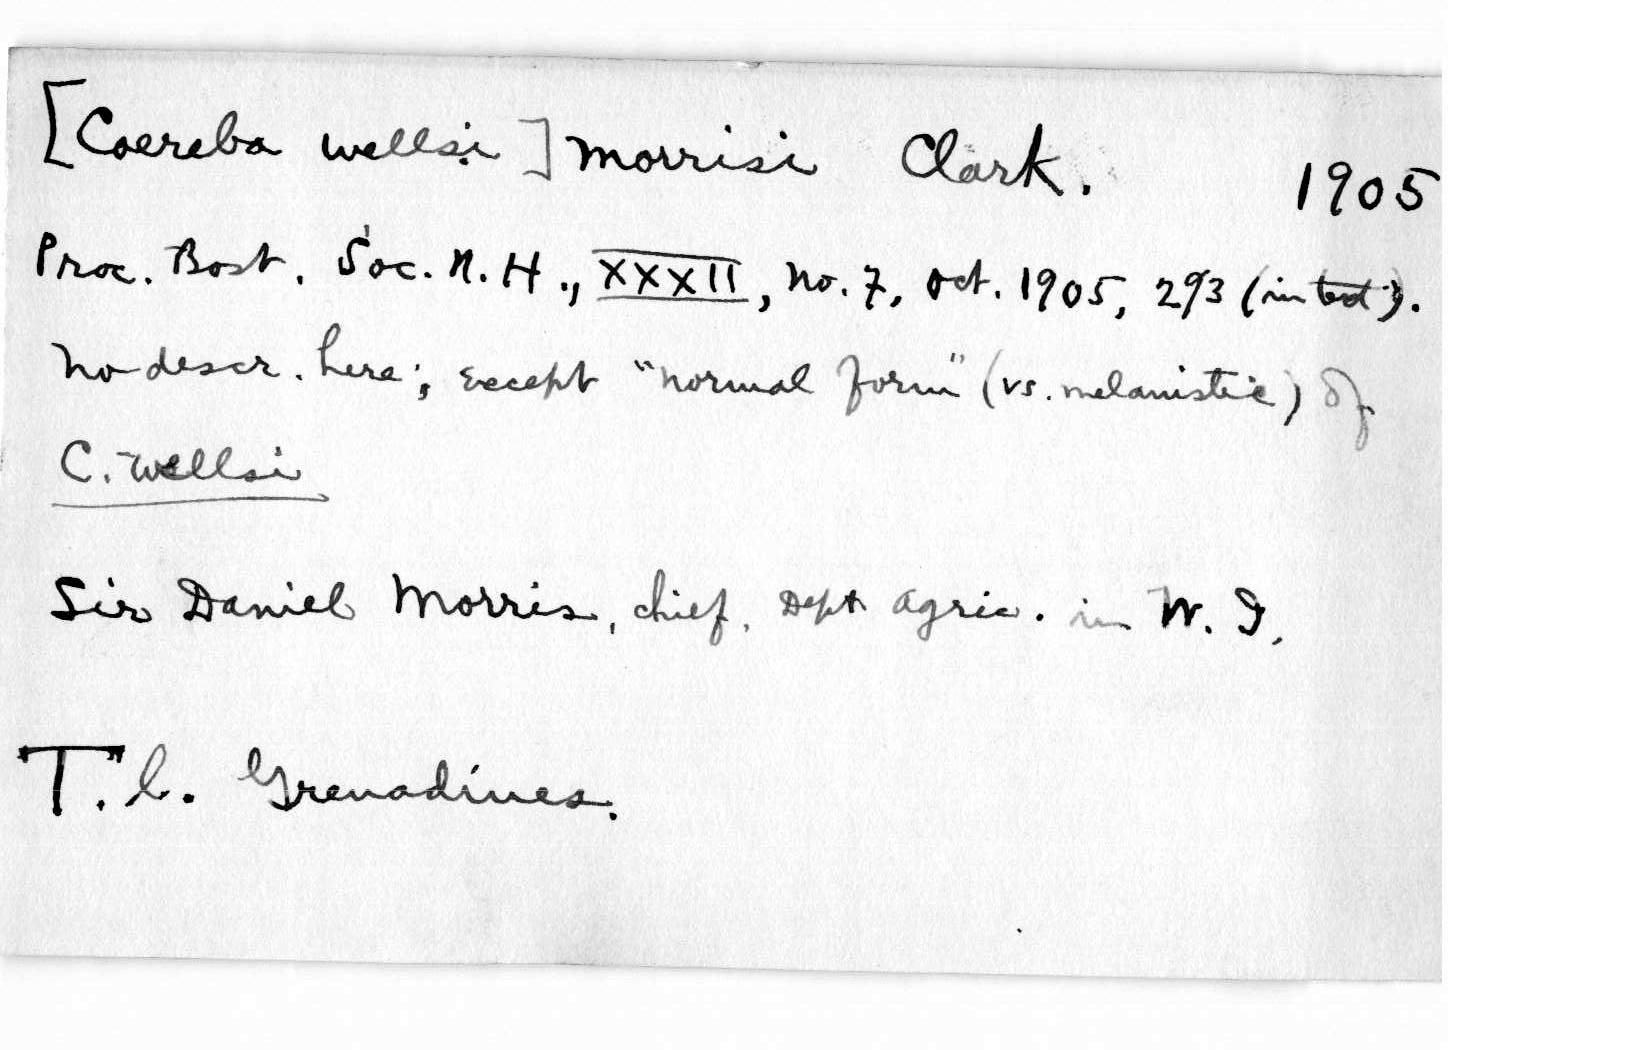 [Coereba wellsi] morrisi Clark. 1905
Proc. Bost. Soc. N. H., XXXII, no. 7, Oct. 1905, 293 (in text).
No descr. here; except "normal form" (vs. melanistic) of
C. wellsi
Sir Daniel Morris, chief, Dept Agric. in W. I.
T. l. Grenadines.